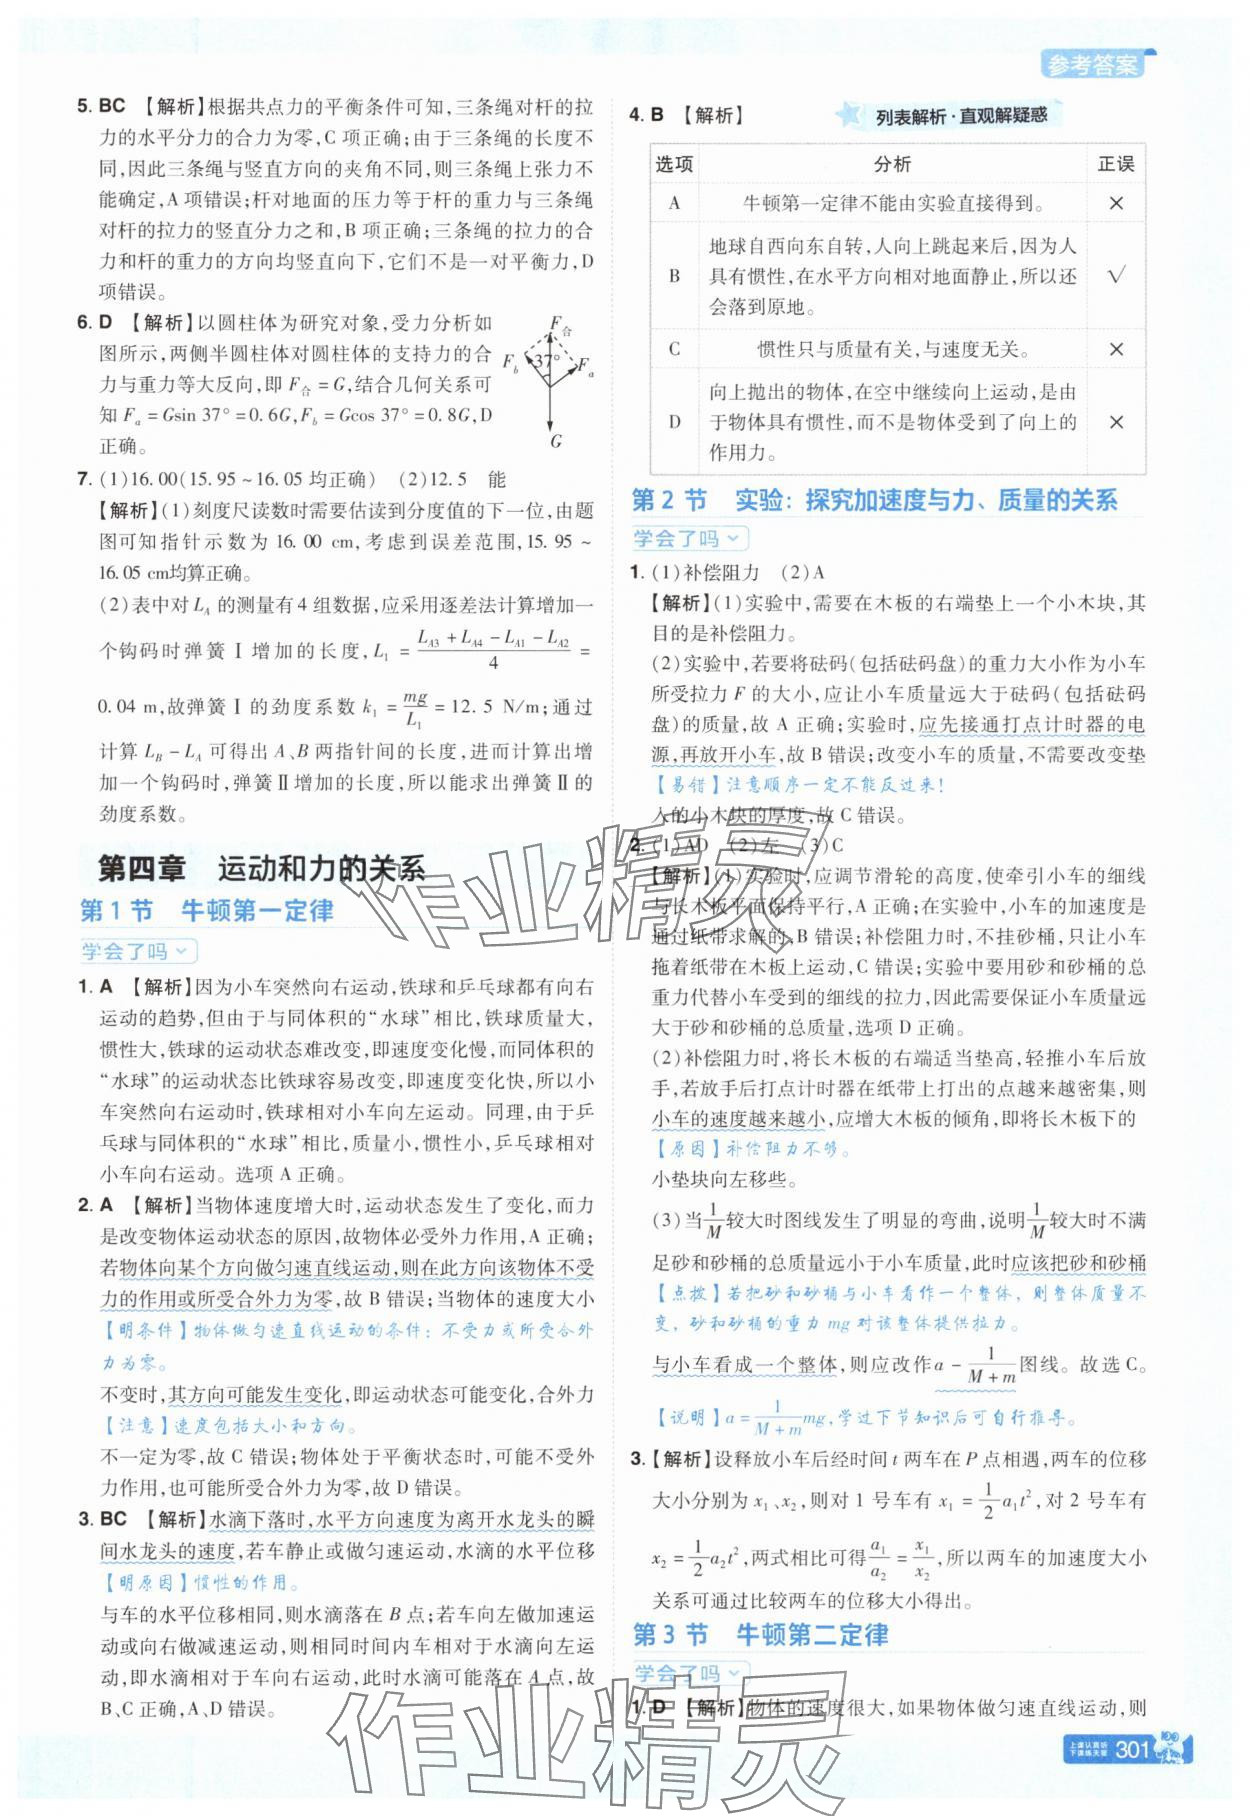 参考答案
5. BC 【解析】根据共点力的平衡条件可知,三条绳对杆的拉
力的水平分力的合力为零,C 项正确;由于三条绳的长度不
同,因此三条绳与竖直方向的夹角不同,则三条绳上张力不
能确定,A 项错误;杆对地面的压力等于杆的重力与三条绳
对杆的拉力的竖直分力之和,B 项正确;三条绳的拉力的合
力和杆的重力的方向均竖直向下,它们不是一对平衡力,D
项错误。
6. D 【解析】以圆柱体为研究对象,受力分析如
图所示,两侧半圆柱体对圆柱体的支持力的合
力与重力等大反向,即 F合 = G,结合几何关系可
知 Fa = Gsin 37° = 0.6G,Fb = Gcos 37° = 0.8G,D
正确。
F合
Fb
37°
Fa
G
7. (1)16.00(15.95 ~ 16.05 均正确) (2)12.5 能
【解析】(1)刻度尺读数时需要估读到分度值的下一位,由题
图可知指针示数为 16.00 cm,考虑到误差范围,15.95 ~
16.05 cm均算正确。
(2)表中对 LA 的测量有 4 组数据,应采用逐差法计算增加一
个钩码时弹簧 Ⅰ 增加的长度,L1 = (LA3 + LA4 - LA1 - LA2)/4 =
0.04 m,故弹簧 Ⅰ 的劲度系数 k1 = mg/L1 = 12.5 N/m;通过
计算 LB - LA 可得出 A、B 两指针间的长度,进而计算出增
加一个钩码时,弹簧Ⅱ增加的长度,所以能求出弹簧Ⅱ的
劲度系数。
第四章 运动和力的关系
第 1 节 牛顿第一定律
学会了吗
1. A 【解析】因为小车突然向右运动,铁球和乒乓球都有向右
运动的趋势,但由于与同体积的“水球”相比,铁球质量大,
惯性大,铁球的运动状态难改变,即速度变化慢,而同体积的
“水球”的运动状态比铁球容易改变,即速度变化快,所以小
车突然向右运动时,铁球相对小车向左运动。同理,由于乒
乓球与同体积的“水球”相比,质量小,惯性小,乒乓球相对
小车向右运动。选项 A 正确。
2. A 【解析】当物体速度增大时,运动状态发生了变化,而力
是改变物体运动状态的原因,故物体必受外力作用,A 正确;
若物体向某个方向做匀速直线运动,则在此方向该物体不受
力的作用或所受合外力为零,故 B 错误;当物体的速度大小
【明条件】物体做匀速直线运动的条件:不受力或所受合外
力为零。
不变时,其方向可能发生变化,即运动状态可能变化,合外力
【注意】速度包括大小和方向。
不一定为零,故 C 错误;物体处于平衡状态时,可能不受外
力作用,也可能所受合外力为零,故 D 错误。
3. BC 【解析】水滴下落时,水平方向速度为离开水龙头的瞬
间水龙头的速度,若车静止或做匀速运动,水滴的水平位移
【明原因】惯性的作用。
与车的水平位移相同,则水滴落在 B 点;若车向左做加速运
动或向右做减速运动,则相同时间内车相对于水滴向左运
动,即水滴相对于车向右运动,此时水滴可能落在 A 点,故
B、C 正确,A、D 错误。
4. B 【解析】 列表解析·直观解疑惑
选项 分析 正误
A 牛顿第一定律不能由实验直接得到。 ×
B 地球自西向东自转,人向上跳起来后,因为人
具有惯性,在水平方向相对地面静止,所以还 √
会落到原地。
C 惯性只与质量有关,与速度无关。 ×
D 向上抛出的物体,在空中继续向上运动,是由
于物体具有惯性,而不是物体受到了向上的 ×
作用力。
第 2 节 实验:探究加速度与力、质量的关系
学会了吗
1. (1)补偿阻力 (2)A
【解析】(1)实验中,需要在木板的右端垫上一个小木块,其
目的是补偿阻力。
(2)实验中,若要将砝码(包括砝码盘)的重力大小作为小车
所受拉力 F 的大小,应让小车质量远大于砝码(包括砝码
盘)的质量,故 A 正确;实验时,应先接通打点计时器的电
源,再放开小车,故 B 错误;改变小车的质量,不需要改变垫
【易错】注意顺序一定不能反过来!
入的小木块的厚度,故 C 错误。
2. (1)AD (2)左 (3)C
【解析】(1)实验时,应调节滑轮的高度,使牵引小车的细线
与长木板平面保持平行,A 正确;在实验中,小车的加速度是
通过纸带求解的,B 错误;补偿阻力时,不挂沙桶,只让小车
拖着纸带在木板上运动,C 错误;实验中要用砂和砂桶的总
重力代替小车受到的细线的拉力,因此需要保证小车质量远
大于砂和砂桶的总质量,选项 D 正确。
(2)补偿阻力时,将长木板的右端适当垫高,轻推小车后放
手,若放手后打点计时器在纸带上打出的点越来越密集,则
小车的速度越来越小,应增大木板的倾角,即将长木板下的
【原因】补偿阻力不够。
小垫块向左移些。
(3)当1/M较大时图线发生了明显的弯曲,说明1/M较大时不满
足砂和砂桶的总质量远小于小车质量,此时应该把砂和砂桶
【点拨】若把砂和砂桶与小车看作一个整体,则整体质量不
变,砂和砂桶的重力 mg 对该整体提供拉力。
与小车看成一个整体,则应改作a - 1/(M + m)图线。故选 C。
【说明】a = 1/(M + m)mg,学过下节知识后可自行推导。
3. 【解析】设释放小车后经时间 t 两车在 P 点相遇,两车的位移
大小分别为 x1、x2,则对 1 号车有 x1 = 1/2 a1t²,对 2 号车有
x2 = 1/2 a2t²,两式相比可得a1/a2 = x1/x2,所以两车的加速度大小
关系可通过比较两车的位移大小得出。
第 3 节 牛顿第二定律
学会了吗
1. D 【解析】物体的速度很大,如果物体做匀速直线运动,则
上课认真听
下课练天星
301
作业精灵
作业精灵